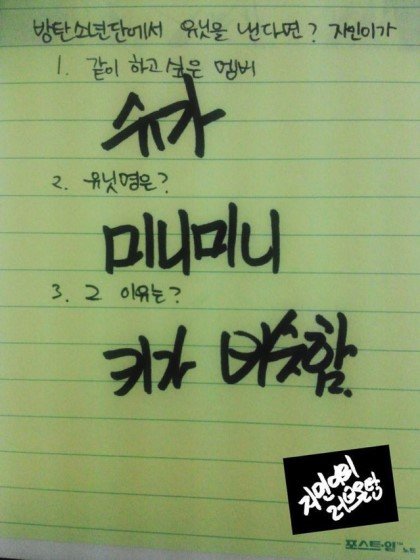 방탄소년단에서 유닛을 낸다면? 지민이가
1. 같이 하고싶은 멤버
슈가
2. 유닛명은?
미니미니
3. 그 이유는?
키가 비슷함.
지민이의
포스트-잇™ 노트